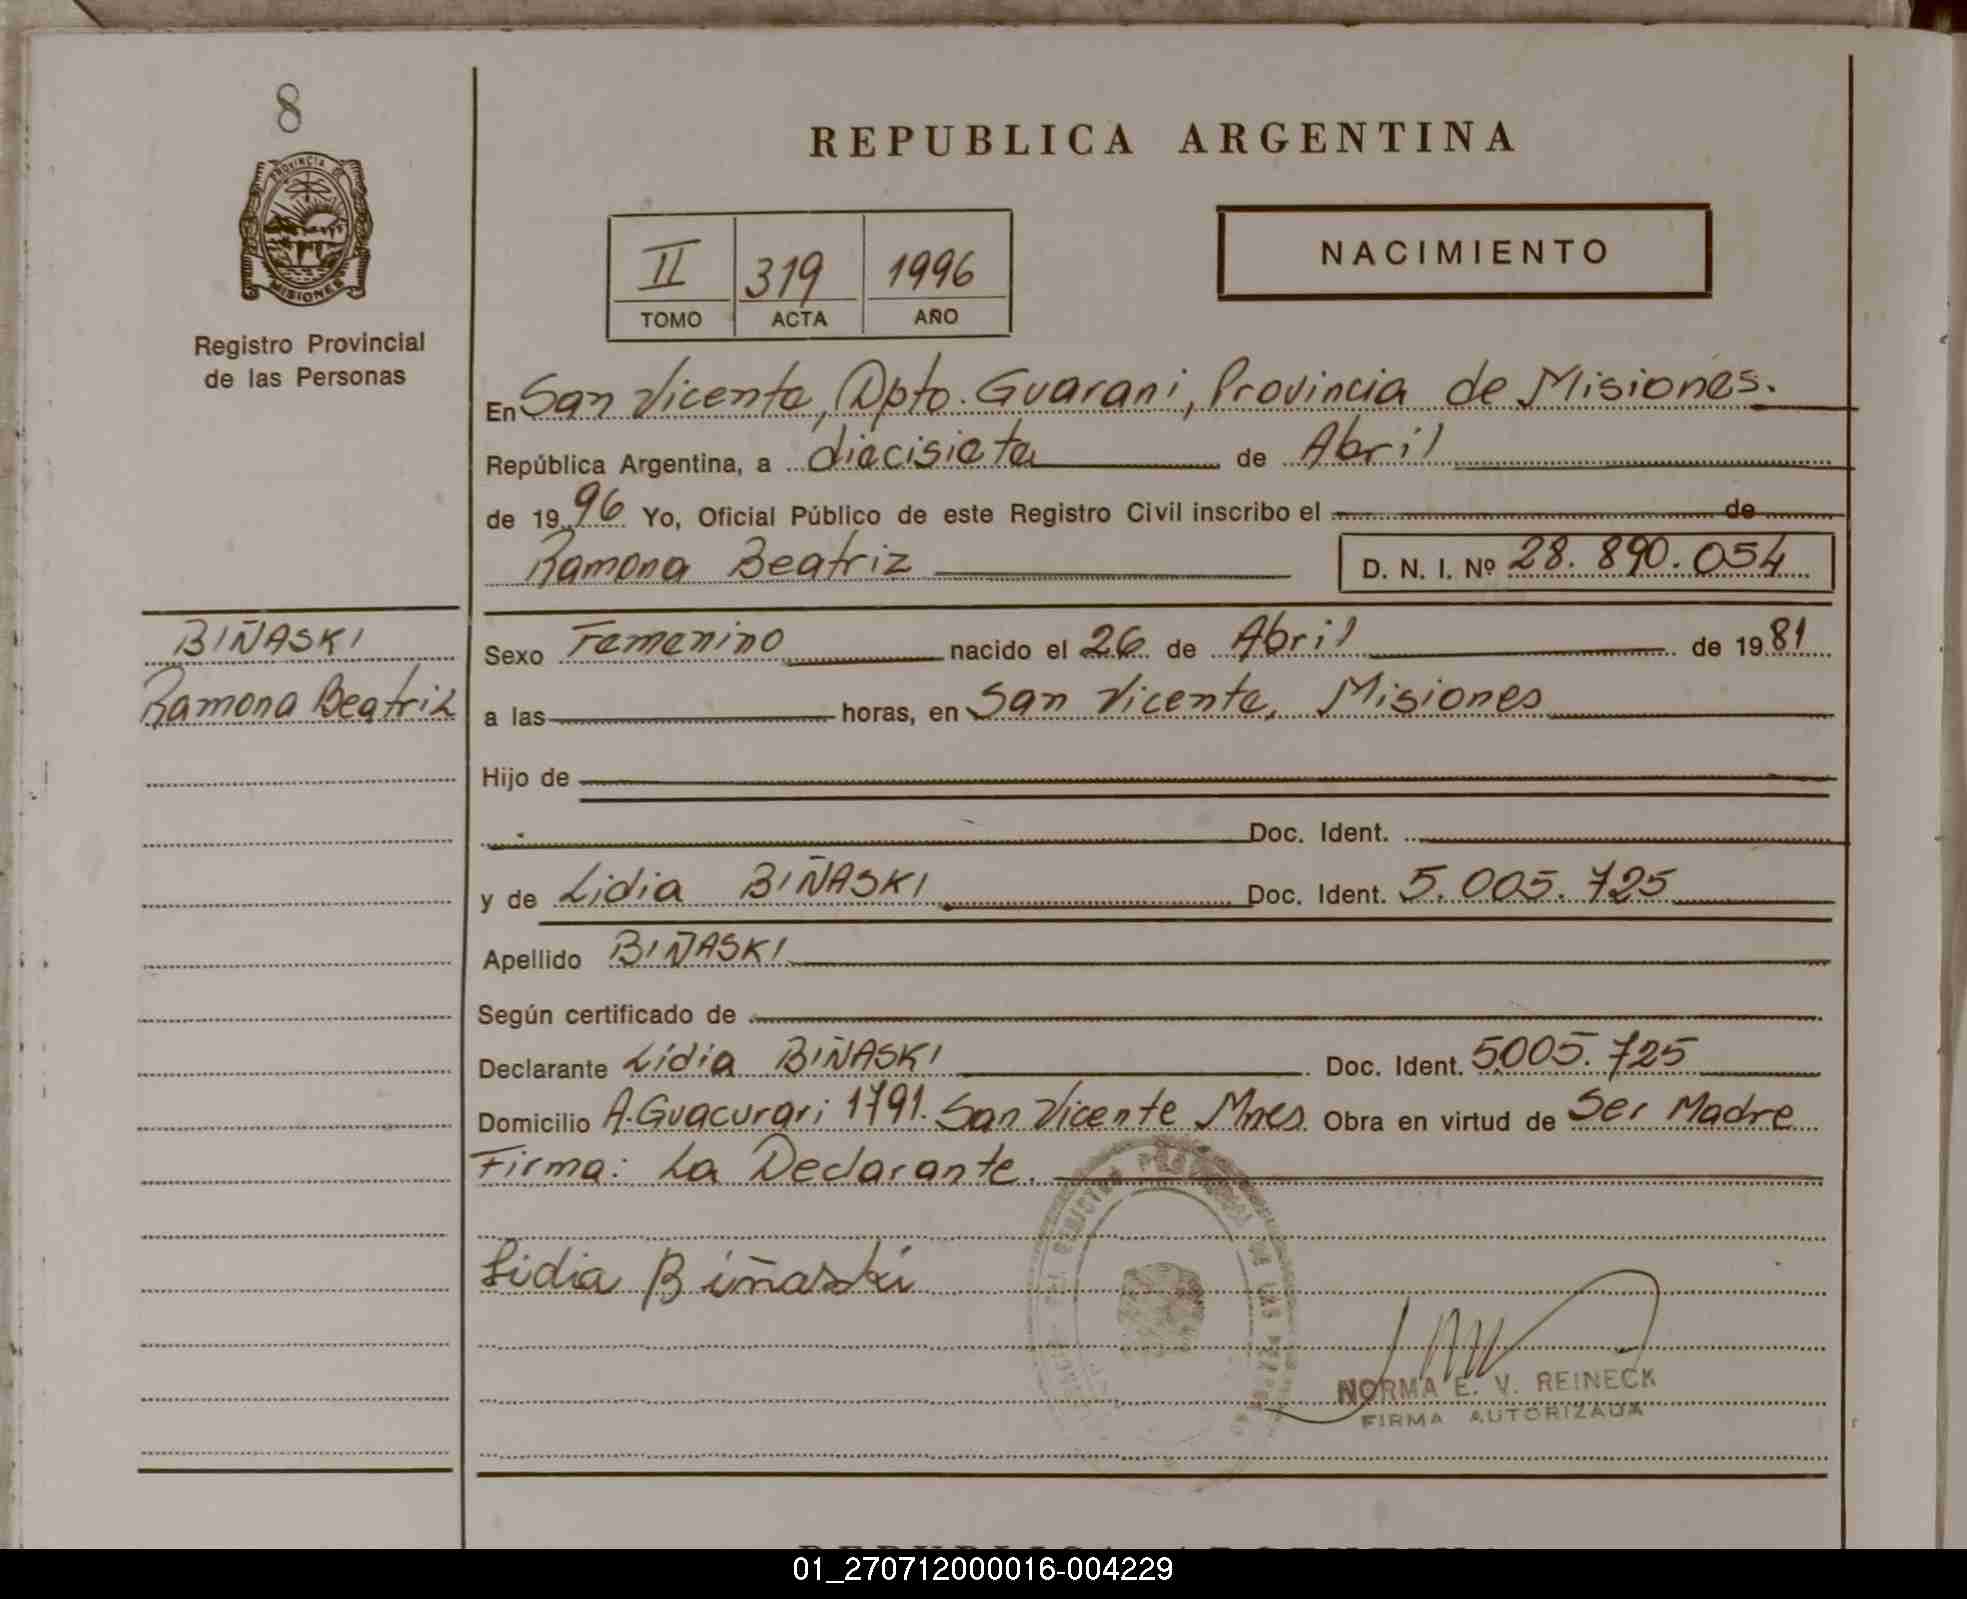 8
PROVINCIA DE
MISIONES
Registro Provincial
de las Personas
REPUBLICA ARGENTINA
II 319 1996
TOMO ACTA AÑO
NACIMIENTO
En San Vicente, Dpto. Guarani, Provincia de Misiones.
República Argentina, a diecisiete de Abril
de 19 96 Yo, Oficial Público de este Registro Civil inscribo el de
Ramona Beatriz D. N. I. Nº 28.890.054
BIÑASKI
Ramona Beatriz
Sexo Femenino nacido el 26 de Abril de 19 81
a las horas, en San Vicente, Misiones
Hijo de
Doc. Ident.
y de Lidia BIÑASKI Doc. Ident. 5.005.725
Apellido BIÑASKI
Según certificado de
Declarante Lidia BIÑASKI Doc. Ident. 5.005.725
Domicilio A. Guacurari 1791. San Vicente Mnes Obra en virtud de Ser Madre
Firma: La Declarante.
Lidia Biñaski
NORMA E. V. REINECK
FIRMA AUTORIZADA
REPUBLICA ARGENTINA
01_270712000016-004229